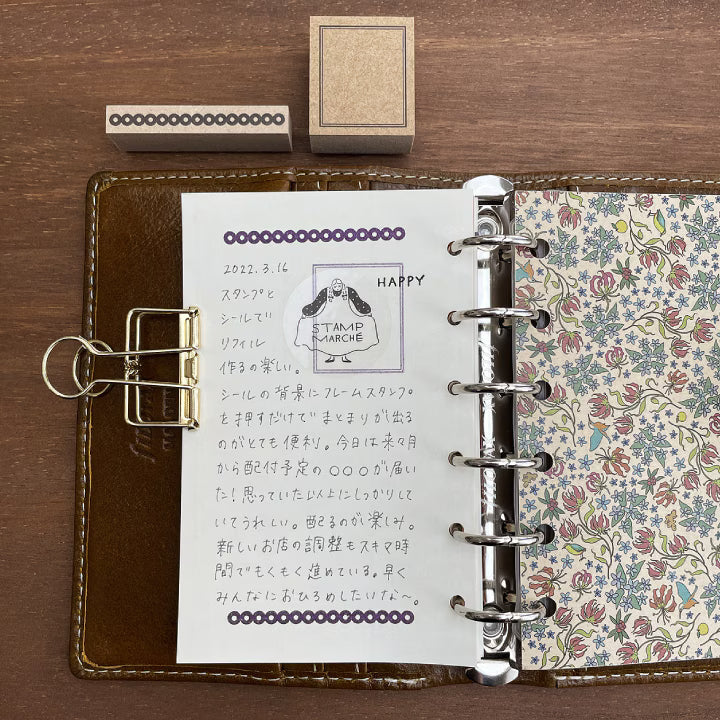 2022.3.16
スタンプと
シールで
リフィル
作るの楽しい。
HAPPY
STAMP
MARCHÉ
シールの背景にフレームスタンプ
を押すだけでまとまりが出る
のがとても便利。今日は来々月
から配付予定の〇〇〇が届い
た!思っていた以上にしっかりして
いてうれしい。配るのが楽しみ。
新しいお店の調整もスキマ時
間でもくもく進めている。早く
みんなにおひろめしたいな〜。